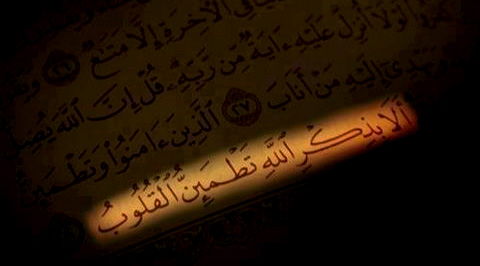 ٱلْأَخِرَةِ إِلَّا مَتَٰعٌ ٢٦
لَوْلَآ أُنزِلَ عَلَيْهِ ءَايَةٌ مِّن رَّبِّهِۦ قُلْ إِنَّ ٱللَّهَ يُضِلُّ
وَيَهْدِىٓ إِلَيْهِ مَنْ أَنَابَ ٢٧ ٱلَّذِينَ ءَامَنُوا۟ وَتَطْمَئِنُّ
أَلَا بِذِكْرِ ٱللَّهِ تَطْمَئِنُّ ٱلْقُلُوبُ